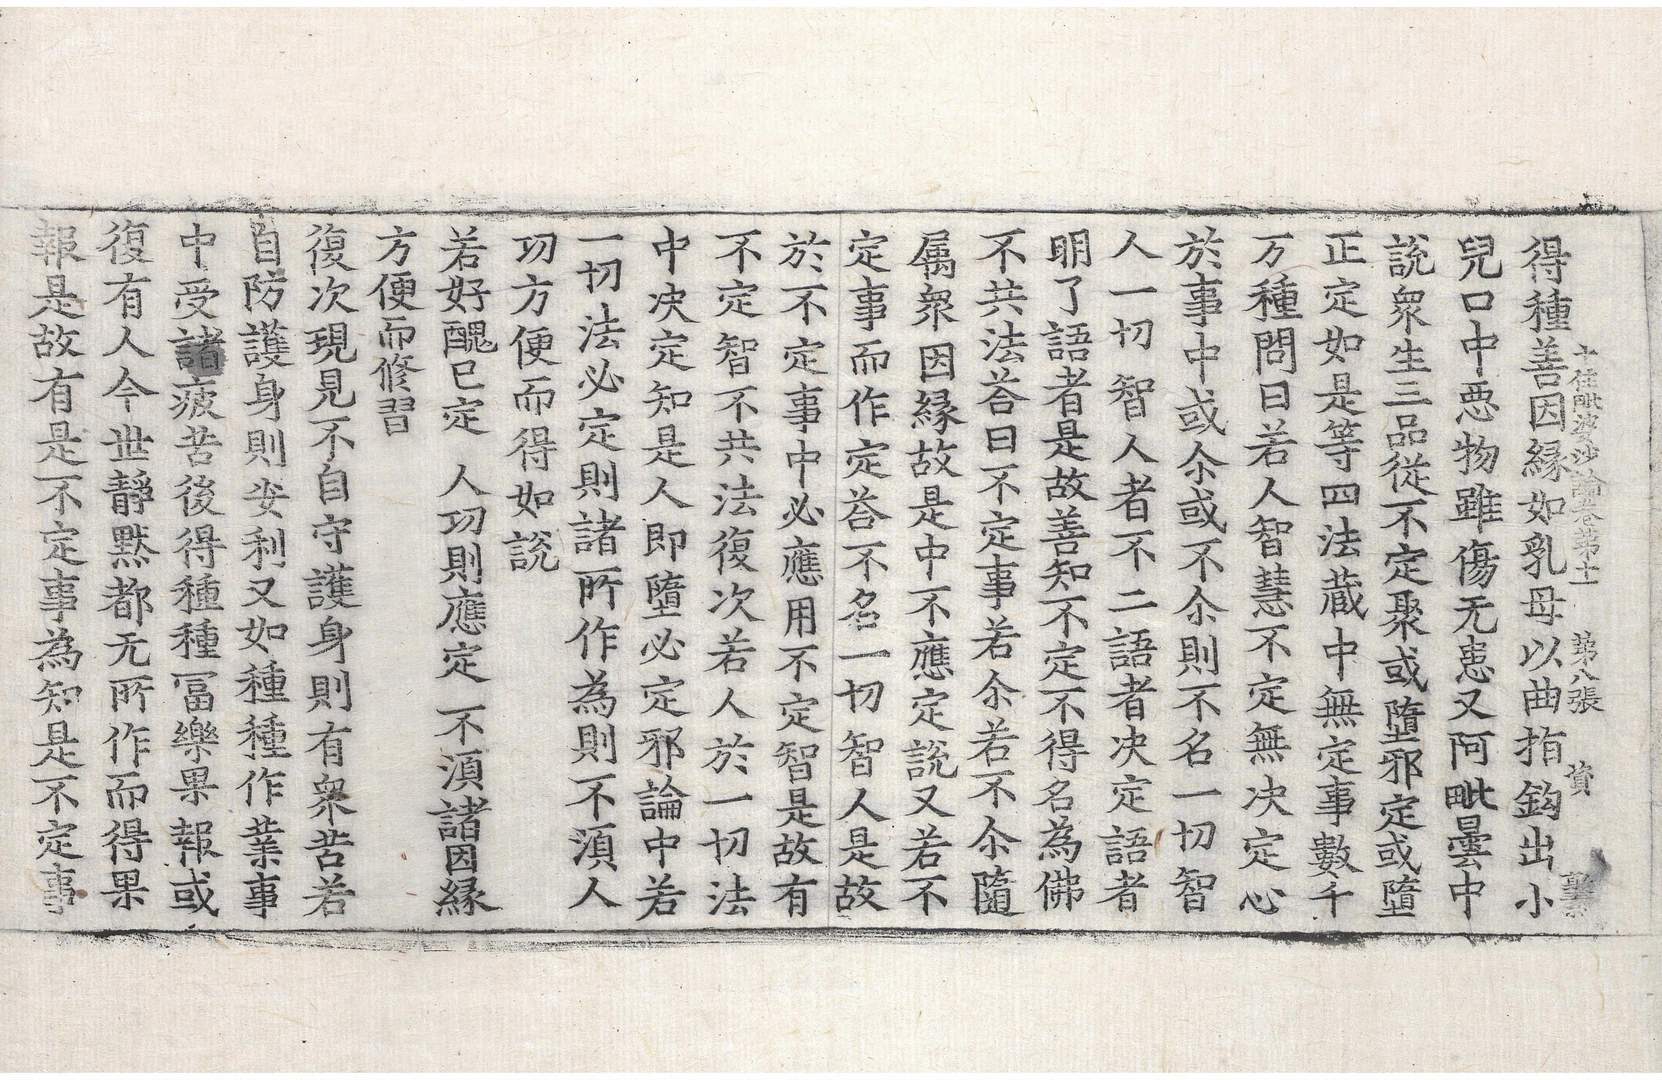 十住毗婆沙論卷第十一　第八張　資
得種善因縁如乳母以曲指鉤出小
兒口中惡物雖傷无患又阿毗曇中
說衆生三品從不定聚或墮邪定或墮
正定如是等四法藏中無定事數千
万種問曰若人智慧不定無决定心
於事中或尒或不尒則不名一切智
人一切智人者不二語者决定語者
明了語者是故善知不定不得名為佛
不共法荅曰不定事若尒若不尒隨
属衆因縁故是中不應定說又若不
定事而作定荅不名一切智人是故
於不定事中必應用不定智是故有
不定智不共法復次若人於一切法
中决定知是人即墮必定邪論中若
一切法必定則諸所作為則不湏人
功方便而得如說
若好醜已定　人功則應定　不湏諸因縁
方便而修習
復次現見不自守護身則有衆苦若
自防護身則安利又如種種作業事
中受諸疲苦後得種種冨樂果報或
復有人今世靜黙都无所作而得果
報是故有是不定事為知是不定事